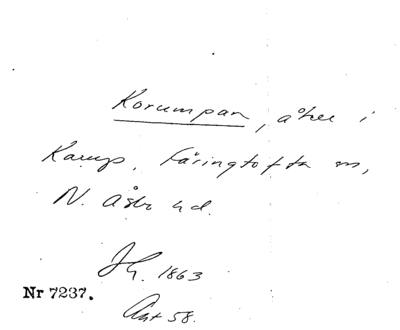 Korumpan, åker i
Karup, Färingtofta sn,
N. Åsbo hd.
Jh. 1863
Nr 7237.
Akt 58.